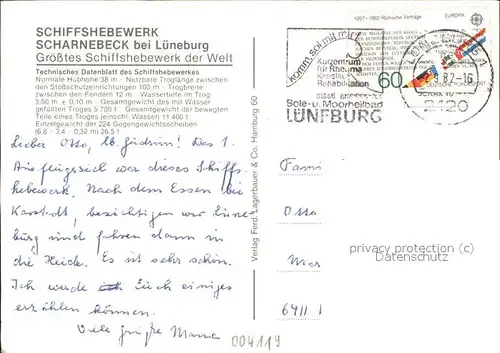 SCHIFFSHEBEWERK
SCHARNEBECK bei Lüneburg
Größtes Schiffshebewerk der Welt
Technisches Datenblatt des Schiffshebewerkes
Normale Hubhöhe 38 m - Nutzbare Troglänge zwischen
den Stoßschutzeinrichtungen 100 m - Trogbreite
zwischen den Fendern 12 m - Wassertiefe im Trog
3,50 m ± 0,10 m - Gesamtgewicht des mit Wasser
gefüllten Troges 5 700 t - Gesamtgewicht der bewegten
Teile eines Troges (einschl. Wasser) 11 400 t
Einzelgewicht der 224 Gegengewichtsscheiben
(6,8 · 3,4 · 0,32 m) 26,5 t
Lieber Otto, lb Gudrun! Das 1.
Ausflugsziel war dieses Schiffs
hebewerk. Nach dem Essen bei
Karstadt, besichtigen wir Lüne
burg und fahren dann in
die Heide. Es ist sehr schön.
Ich werde Euch einiges
erzählen können.
Viele Grüße Mama
Verlag Ferd. Lagerbauer & Co. Hamburg 60
1957-1982 Römische Verträge EUROPA
60
komm sol mit mir
Kurzentrum
für Rheuma
Kreislauf
Rehabilitation
Sole-u. Moorheilbad
LÜNEBURG
82-16
2120
Fami
Otto
6411
privacy protection (c)
Datenschutz
004119